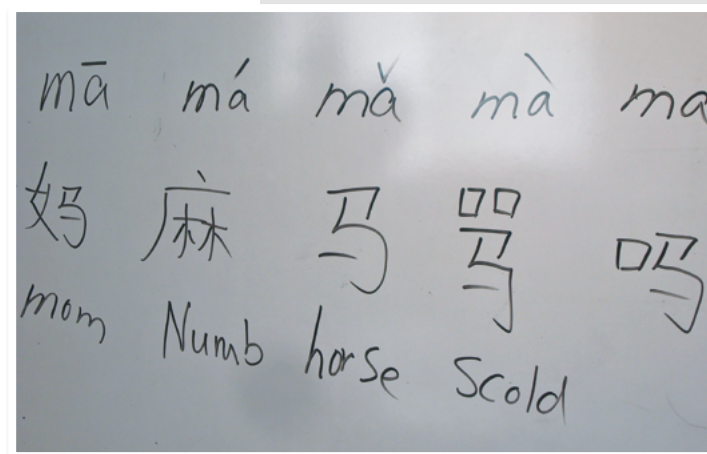 mā má mǎ mà ma
妈 麻 马 骂 吗
mom Numb horse Scold